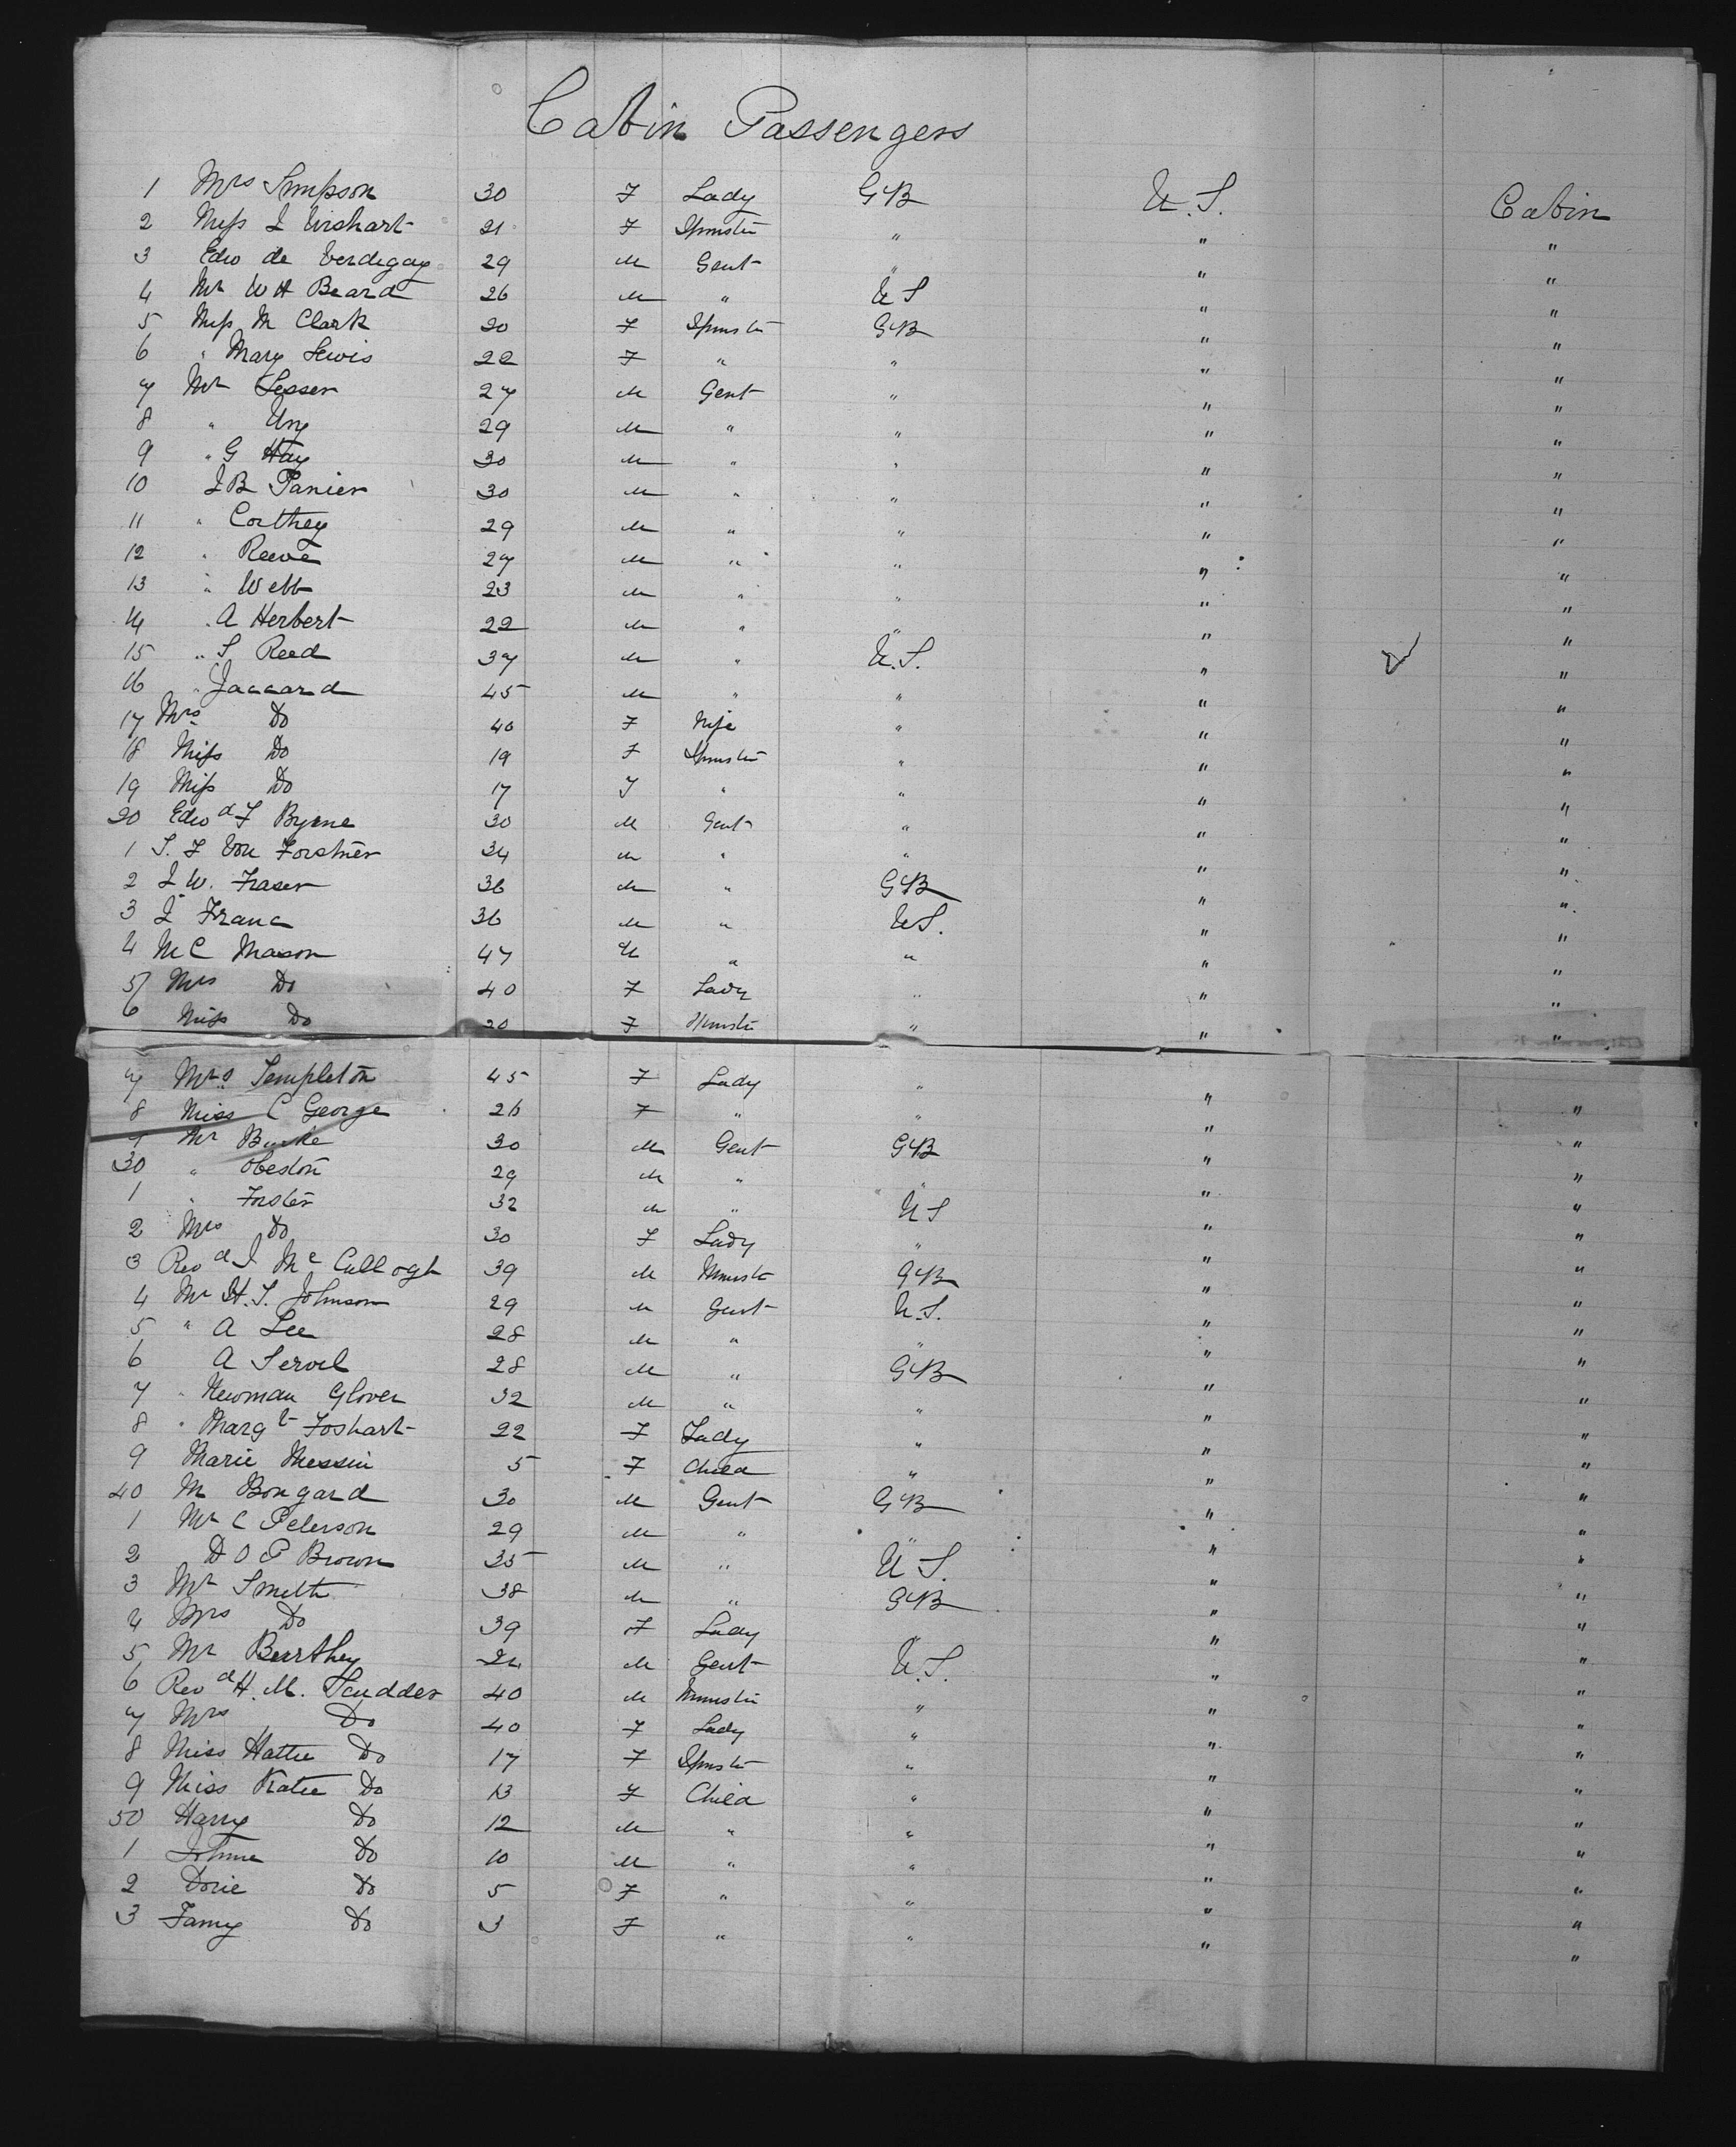 Cabin Passengers
1 Mrs Simpson 30 F Lady GB U.S. Cabin
2 Miss J Urshart 21 F Spinster " " "
3 Edw de Verdigay 29 M Gent " " "
4 Mr W H Beard 26 M " U S " "
5 Miss M Clark 20 F Spinster GB " "
6 " Mary Lewis 22 F " " " "
7 Mr Lesser 27 M Gent " " "
8 " Ury 29 M " " " "
9 " G Hay 30 M " " " "
10 J B Panier 30 M " " " "
11 " Corthey 29 M " " " "
12 " Reeve 27 M " " " "
13 " Webb 23 M " " " "
14 " A Herbert 22 M " " " "
15 " S Reed 37 M " U.S. " "
16 " Jaccard 45 M " " " "
17 Mrs Do 40 F Wife " " "
18 Miss Do 19 F Spinster " " "
19 Miss Do 17 F " " " "
20 Edwd F Byrne 30 M Gent " " "
1 S. F Von Forstner 34 M " " " "
2 J. W. Fraser 36 M " GB " "
3 J Franc 36 M " US. " "
4 M C Mason 47 M " " " "
5 Mrs Do 40 F Lady " " "
6 Miss Do 20 F Spinster " " "
7 Mrs Templeton 45 F Lady " " "
8 Miss C George 26 F " " " "
9 Mr Burke 30 M Gent GB " "
30 " Obeston 29 M " " " "
1 " Forster 32 M " U S " "
2 Mrs Do 30 F Lady " " "
3 Revd J Mc Cullogh 39 M Minister GB " "
4 Mr H. S. Johnson 29 M Gent U.S. " "
5 " A Lee 28 M " " " "
6 A Servel 28 M " GB " "
7 " Newman Glover 32 M " " " "
8 " Margt Foshart 22 F Lady " " "
9 Marie Messin 5 F Child " " "
40 M Bongard 30 M Gent GB " "
1 Mr C Peterson 29 M " " " "
2 D O P Brown 35 M " U S. " "
3 Mr Smith 38 M " GB " "
4 Mrs Do 39 F Lady " " "
5 Mr Burthey 24 M Gent U.S. " "
6 Revd H. M. Scudder 40 M Minister " " "
7 Mrs Do 40 F Lady " " "
8 Miss Hattie Do 17 F Spinster " " "
9 Miss Katie Do 13 F Child " " "
50 Harry Do 12 M " " " "
1 Johnie Do 10 M " " " "
2 Dorie Do 5 F " " " "
3 Fanny Do 3 F " " " "